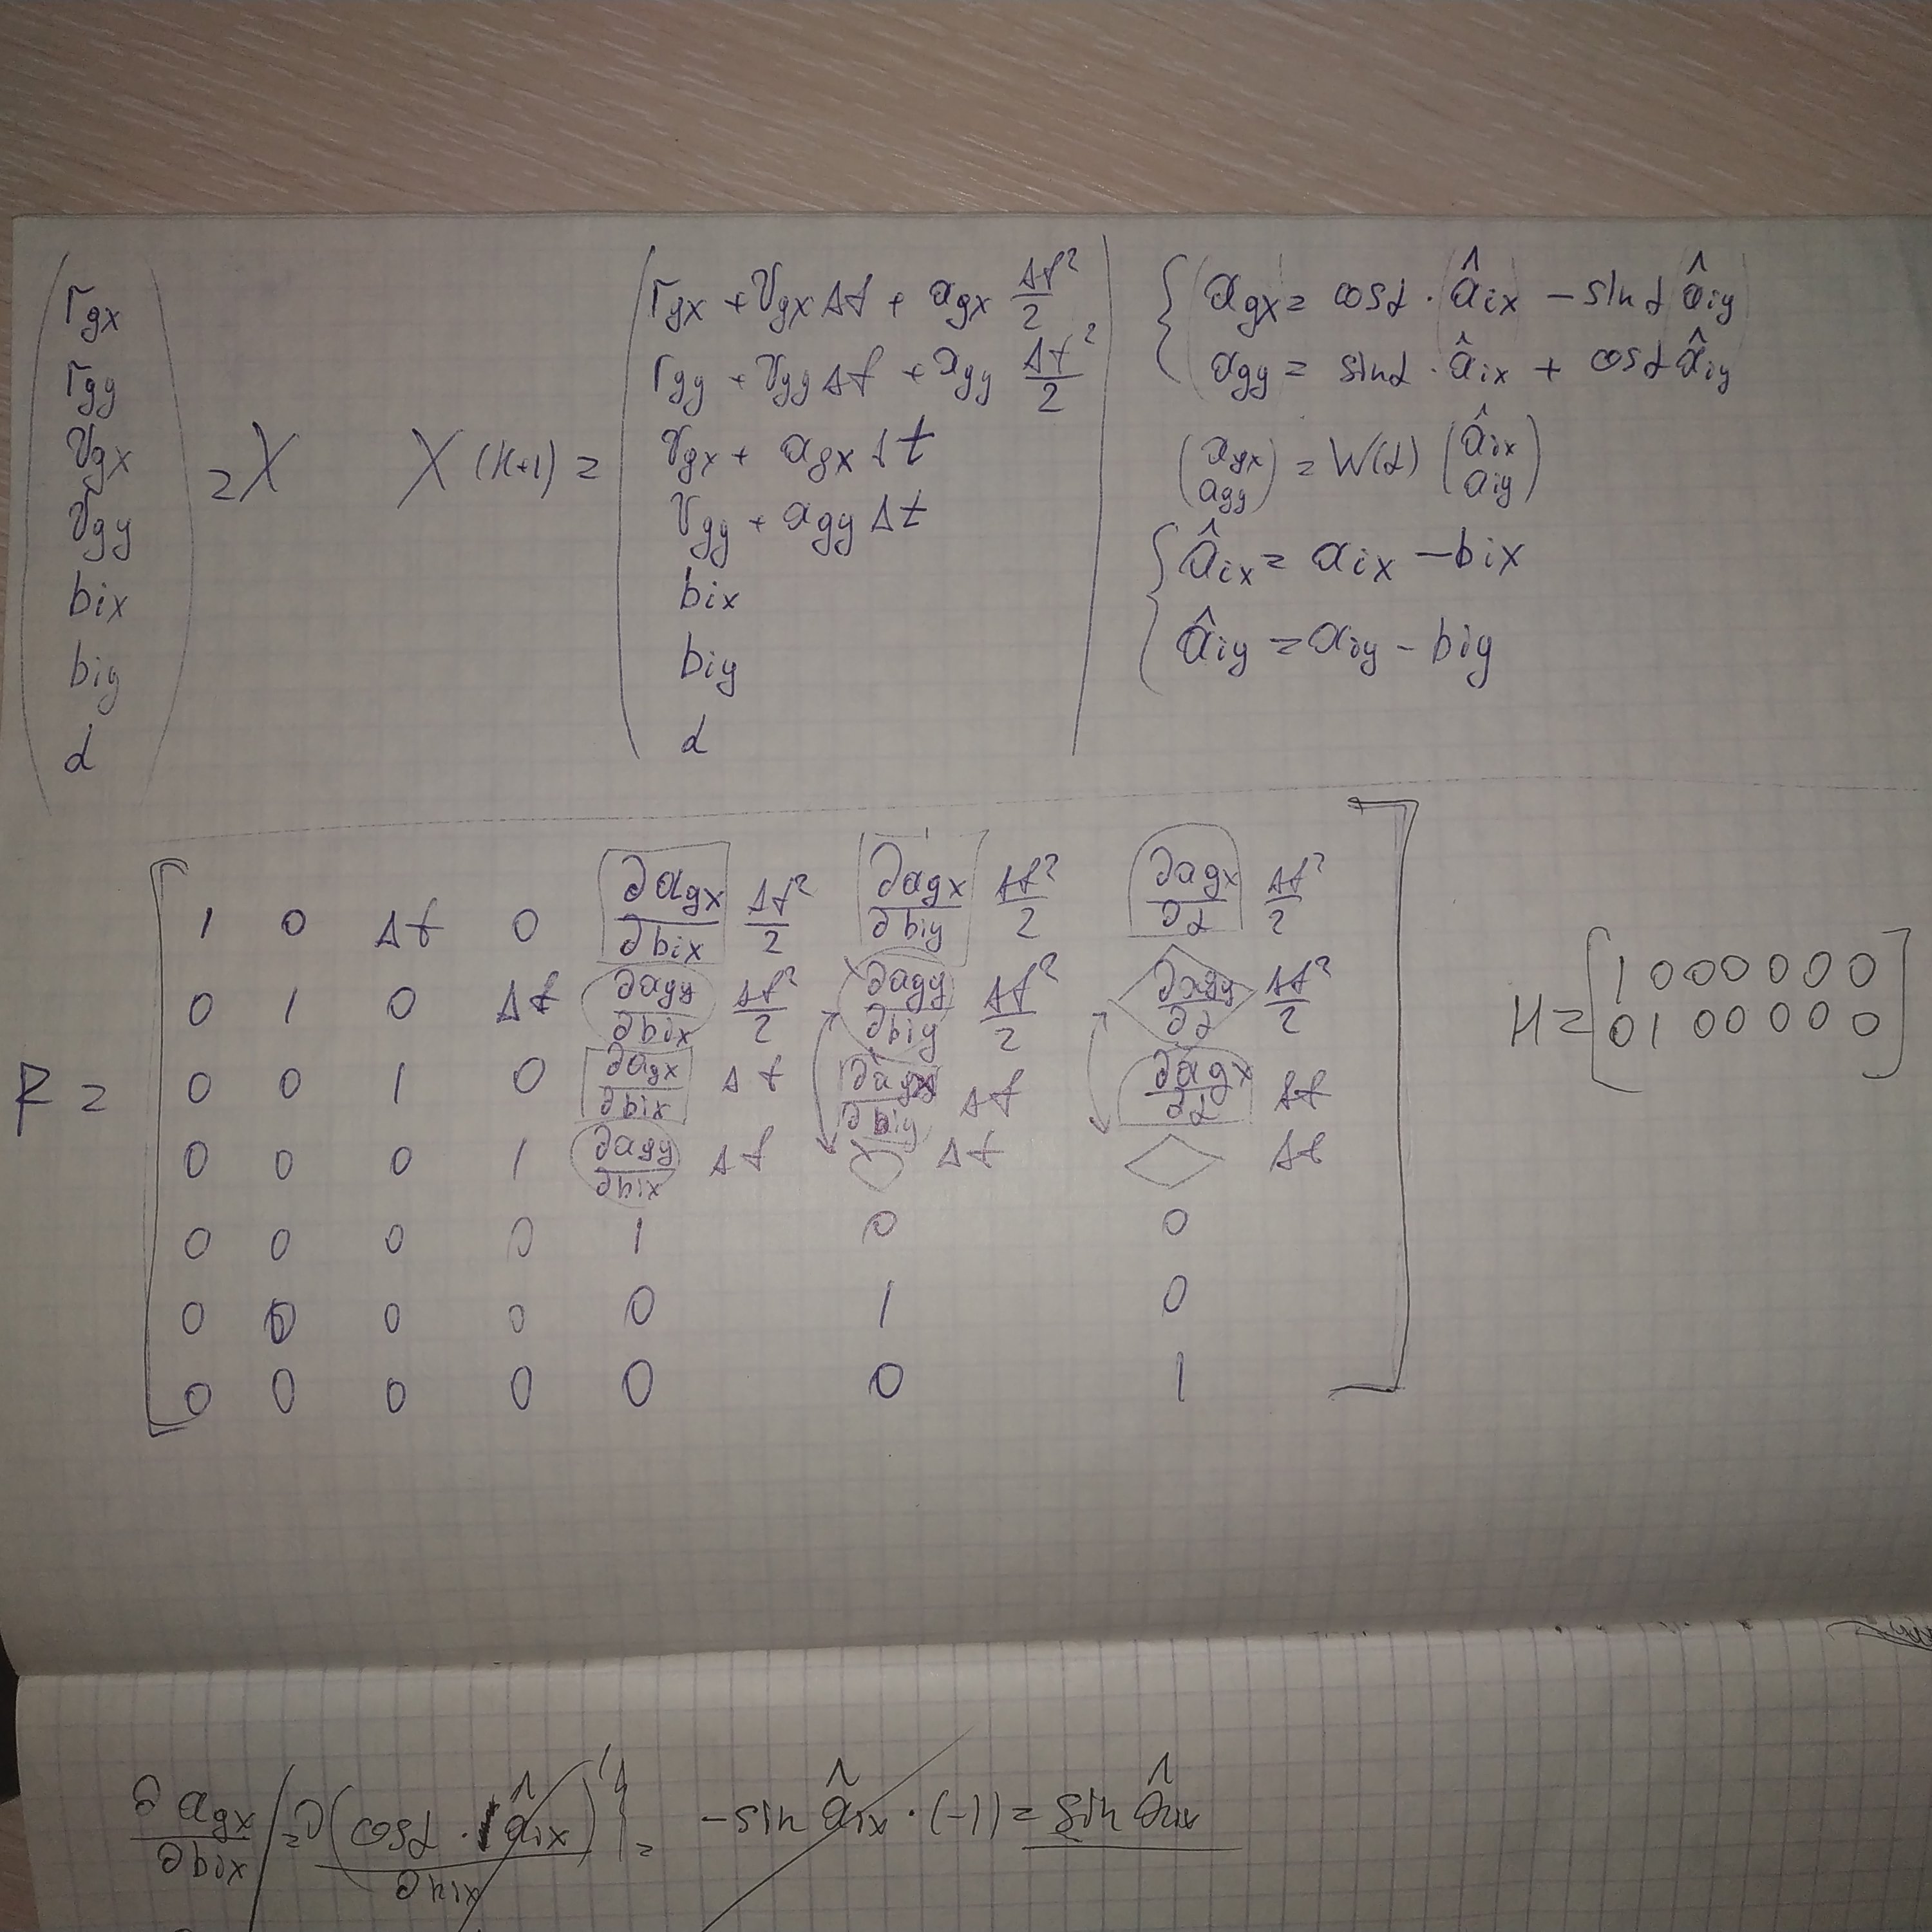 rgx
rgy
vgx
vgy
bix
biy
α
= X
X (k+1) =
rgx + vgx Δt + agx Δt²/2
rgy + vgy Δt + agy Δt²/2
vgx + agx Δt
vgy + agy Δt
bix
biy
α
agx = cosα · âix − sinα âiy
agy = sinα · âix + cosα âiy
(agx agy) = W(α) (âix aiy)
âix = aix − bix
âiy = aiy − biy
F =
1 0 Δt 0 ∂agx/∂bix Δt²/2 ∂agx/∂biy Δt²/2 ∂agx/∂α Δt²/2
0 1 0 Δt ∂agy/∂bix Δt²/2 ∂agy/∂biy Δt²/2 ∂agy/∂α Δt²/2
0 0 1 0 ∂agx/∂bix Δt ∂agx/∂biy Δt ∂agx/∂α Δt
0 0 0 1 ∂agy/∂bix Δt Δt Δt
0 0 0 0 1 0 0
0 0 0 0 0 1 0
0 0 0 0 0 0 1
H =
1 0 0 0 0 0 0
0 1 0 0 0 0 0
∂agx/∂bix = ∂(cosα · âix)/∂bix = −sin âix · (−1) = sin âix